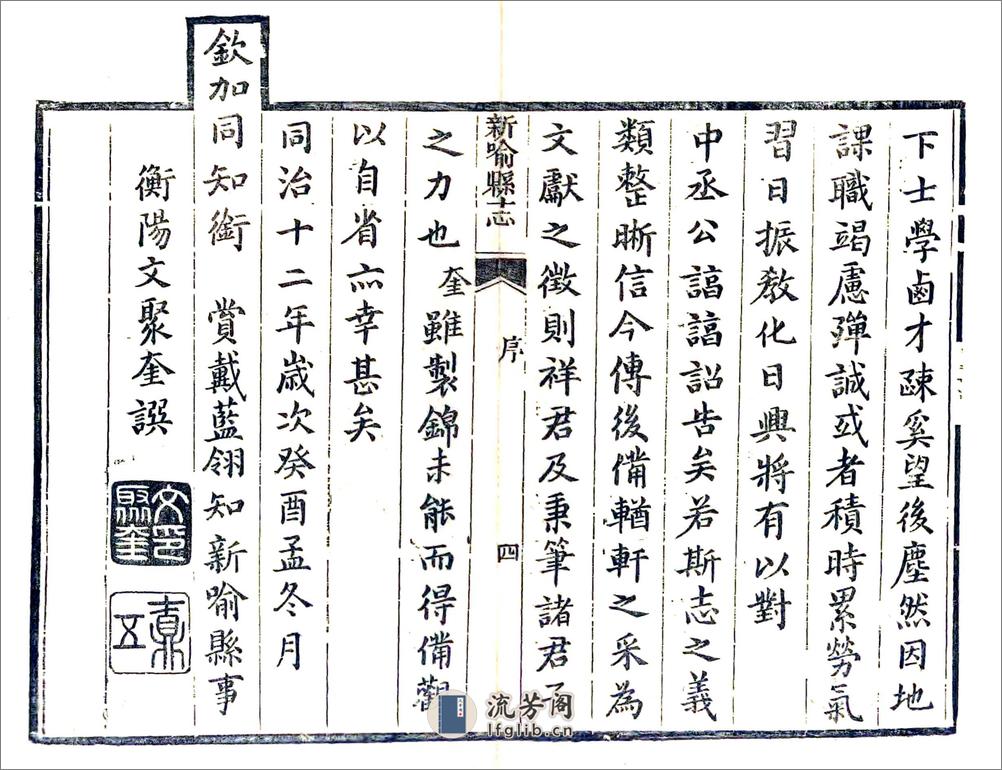 下士學鹵才疎奚望後塵然因地
課職竭慮殫誠或者積時累勞氣
習日振敎化日興將有以對
中丞公諄諄詔告矣若斯志之義
類整晰信今傳後備輶軒之采為
文獻之徵則祥君及秉筆諸君子
新喻縣志
序
四
之力也奎雖製錦未能而得備觀
以自省亦幸甚矣
同治十二年歲次癸酉孟冬月
欽加同知銜 賞戴藍翎知新喻縣事
衡陽文聚奎譔
文印聚奎
流芳阁
lfglib.cn